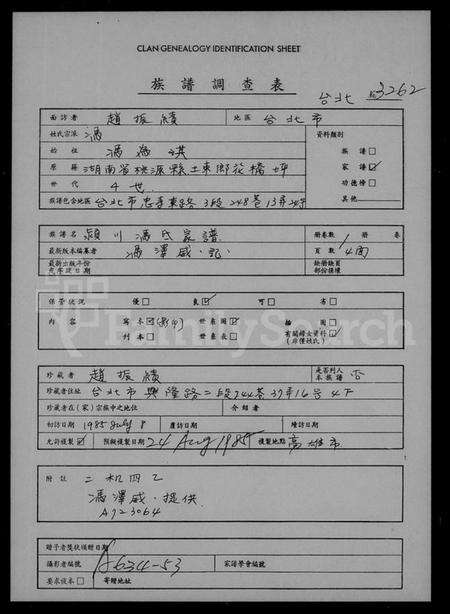 CLAN GENEALOGY IDENTIFICATION SHEET
族譜調查表
台北 3262
面訪者 趙振績 地區 台北市
姓氏宗派 馮 資料類別
始位 馮 祺 族譜
原籍 湖南省桃源縣土東鄉花橋坪 家譜 ☑
世代 4世 功德榜
族譜包含地區 台北市忠孝東路3段248巷13弄 其他
族譜名 潁川馮氏家譜 冊卷數 1 冊 卷
最新版本編纂者 馮澤威・記 頁數 4面
最新出版年份
部份損壞
保管狀況 優 良 ☑ 可 劣
內容 寫本 ☑ (影印) 世系圖 ☑ 插圖
刊本 世系表 有關婦女資料 (非僅姓氏)
珍藏者 趙振績 是否刊入本族譜 否
珍藏者住址 台北市興隆路二段244巷37弄16号4F
珍藏者在(家)宗族中之地位 介紹者
初訪日期 1985 July 8 覆訪日期 續訪日期
允許複製 ☑ 預擬複製日期 24 Aug 1985 複製地點 高雄市
附註 二机四乙
馮澤威・提供
A923064
贈予者獎狀頒贈日期
攝影者編號 A634-53 家譜學會編號
要求複本 寄贈地址
FamilySearch